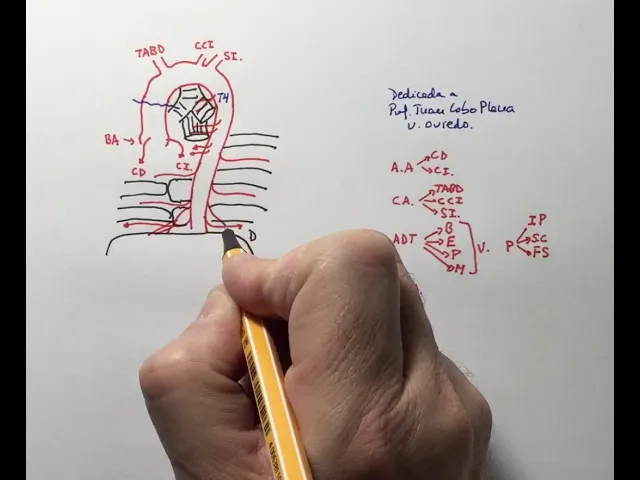 TABD CCI SI.
T4
BA →
CD CI.
D
Dedicada a
Prof. Juan Cobo Plana
U. Oviedo.
A.A CD
CI.
C.A. TABD
CCI
SI.
ADT B
E
P
M
V.
P IP
SC
FS